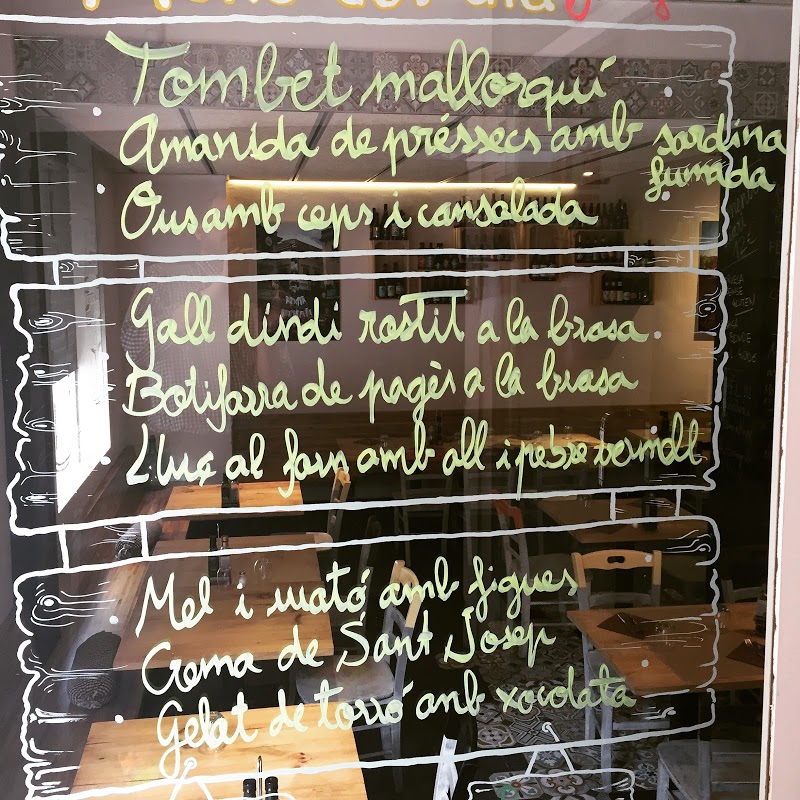 Menú del dia
Tombet mallorquí
Amanida de préssecs amb sardina
fumada
Ous amb ceps i cansalada
Gall díndi rostit a la brasa
Botifarra de pagès a la brasa
Lluç al forn amb all i pebre vermell
Mel i mató amb figues
Crema de Sant Josep
Gelat de torró amb xocolata